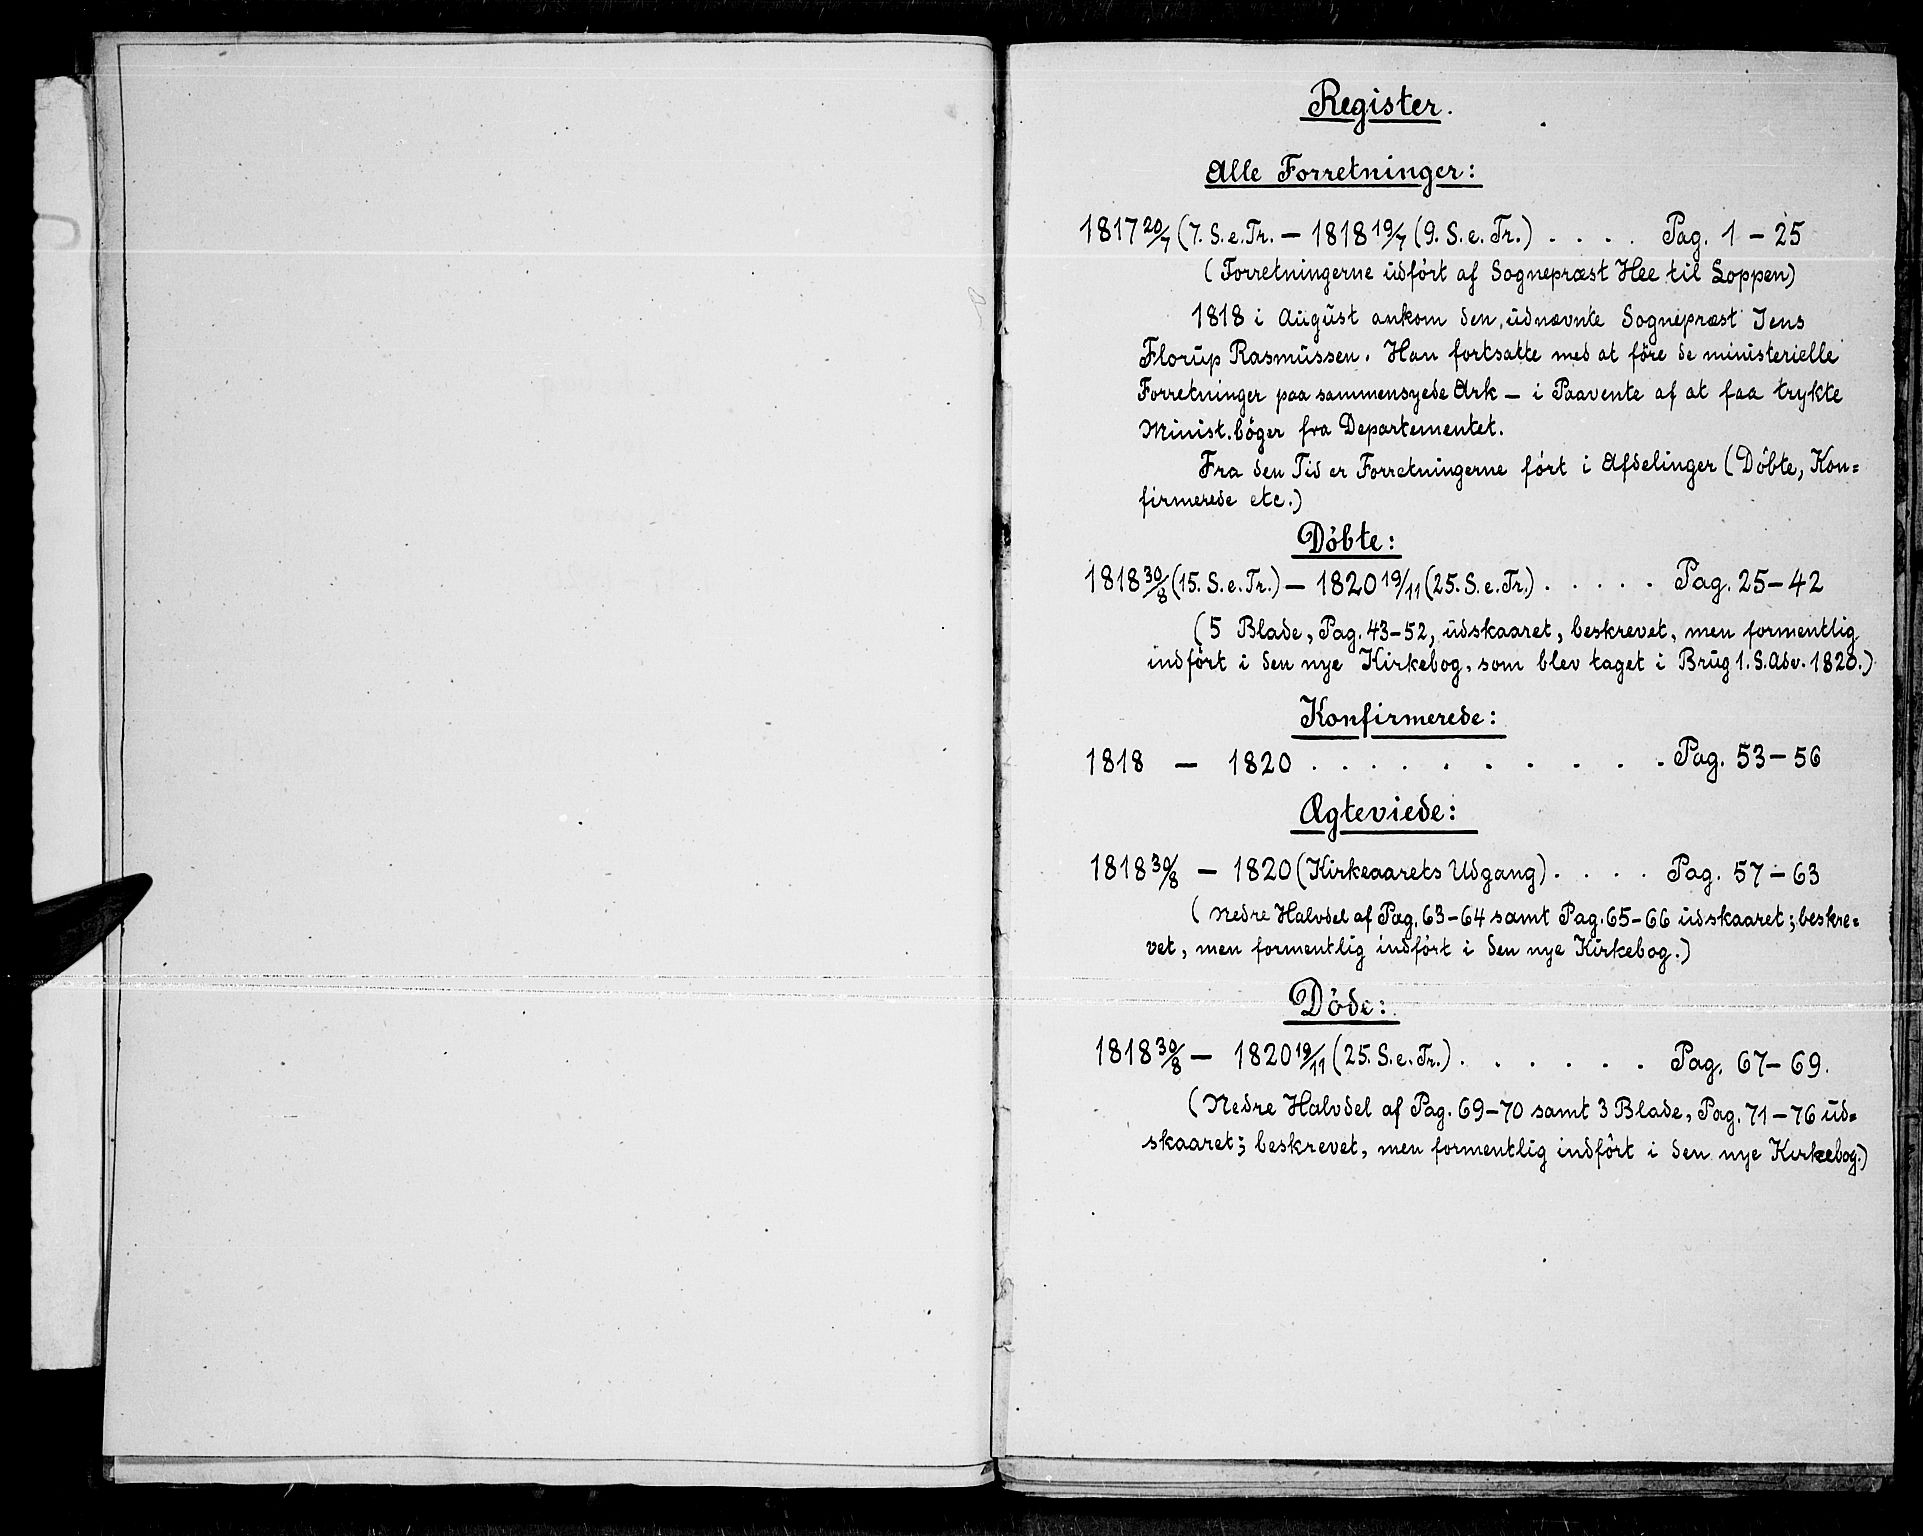 Register.
Alle Forretninger:
1817 20/7 (7. S. e. Tr. – 1818 19/7 (9. S. e. Tr.) . . . . Pag. 1 – 25
(Forretningerne udført af Sognepræst Hee til Loppen)
1818 i August ankom den udnævnte Sognepræst Jens
Florup Rasmussen. Han fortsatte med at före de ministerielle
Forretninger paa sammensyede Ark – i Paavente af at faa trykte
Minist.bøger fra Departementet.
Fra den Tid er Forretningerne ført i Afdelinger (Döbte, Kon=
firmerede etc.)
Döbte:
1818 30/8 (15. S. e. Tr.) – 1820 19/11 (25. S. e. Tr.) . . . . . Pag. 25–42
(5 Blade, Pag. 43–52, udskaaret, beskrevet, men formentlig
indført i den nye Kirkebog, som blev taget i Brug 1. S. Adv. 1820.)
Konfirmerede:
1818 – 1820 . . . . . . . . . Pag. 53–56
Ægteviede:
1818 30/8 – 1820 (Kirkeaarets Udgang) . . . . Pag. 57–63
(Nedre Halvdel af Pag. 63–64 samt Pag. 65–66 udskaaret; beskre=
vet, men formentlig indført i den nye Kirkebog.)
Döde:
1818 30/8 – 1820 19/11 (25. S. e. Tr.) . . . . . . Pag. 67–69.
(Nedre Halvdel af Pag. 69–70 samt 3 Blade, Pag. 71–76 ud=
skaaret; beskrevet, men formentlig indført i den nye Kirkebog.)